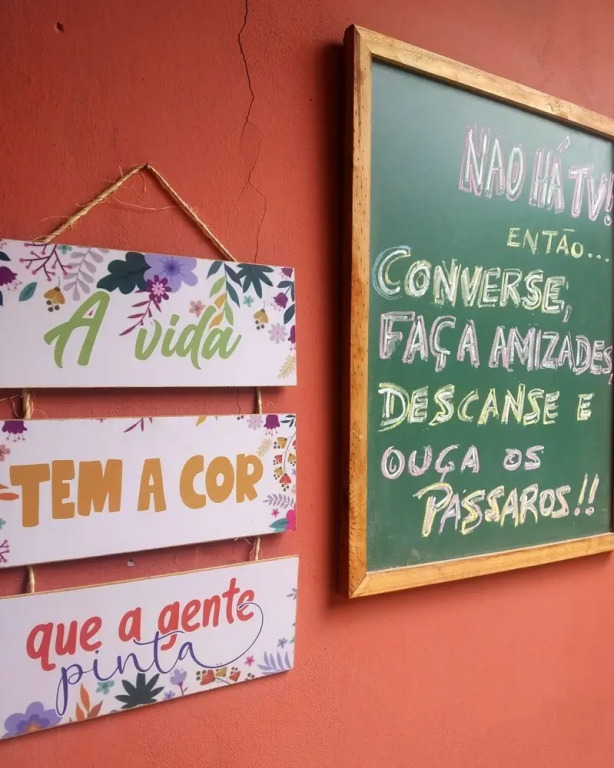 A vida
TEM A COR
que a gente
pinta
NAO HÁ TV!
ENTÃO...
CONVERSE,
FAÇA AMIZADES
DESCANSE E
OUÇA OS
PÁSSAROS!!